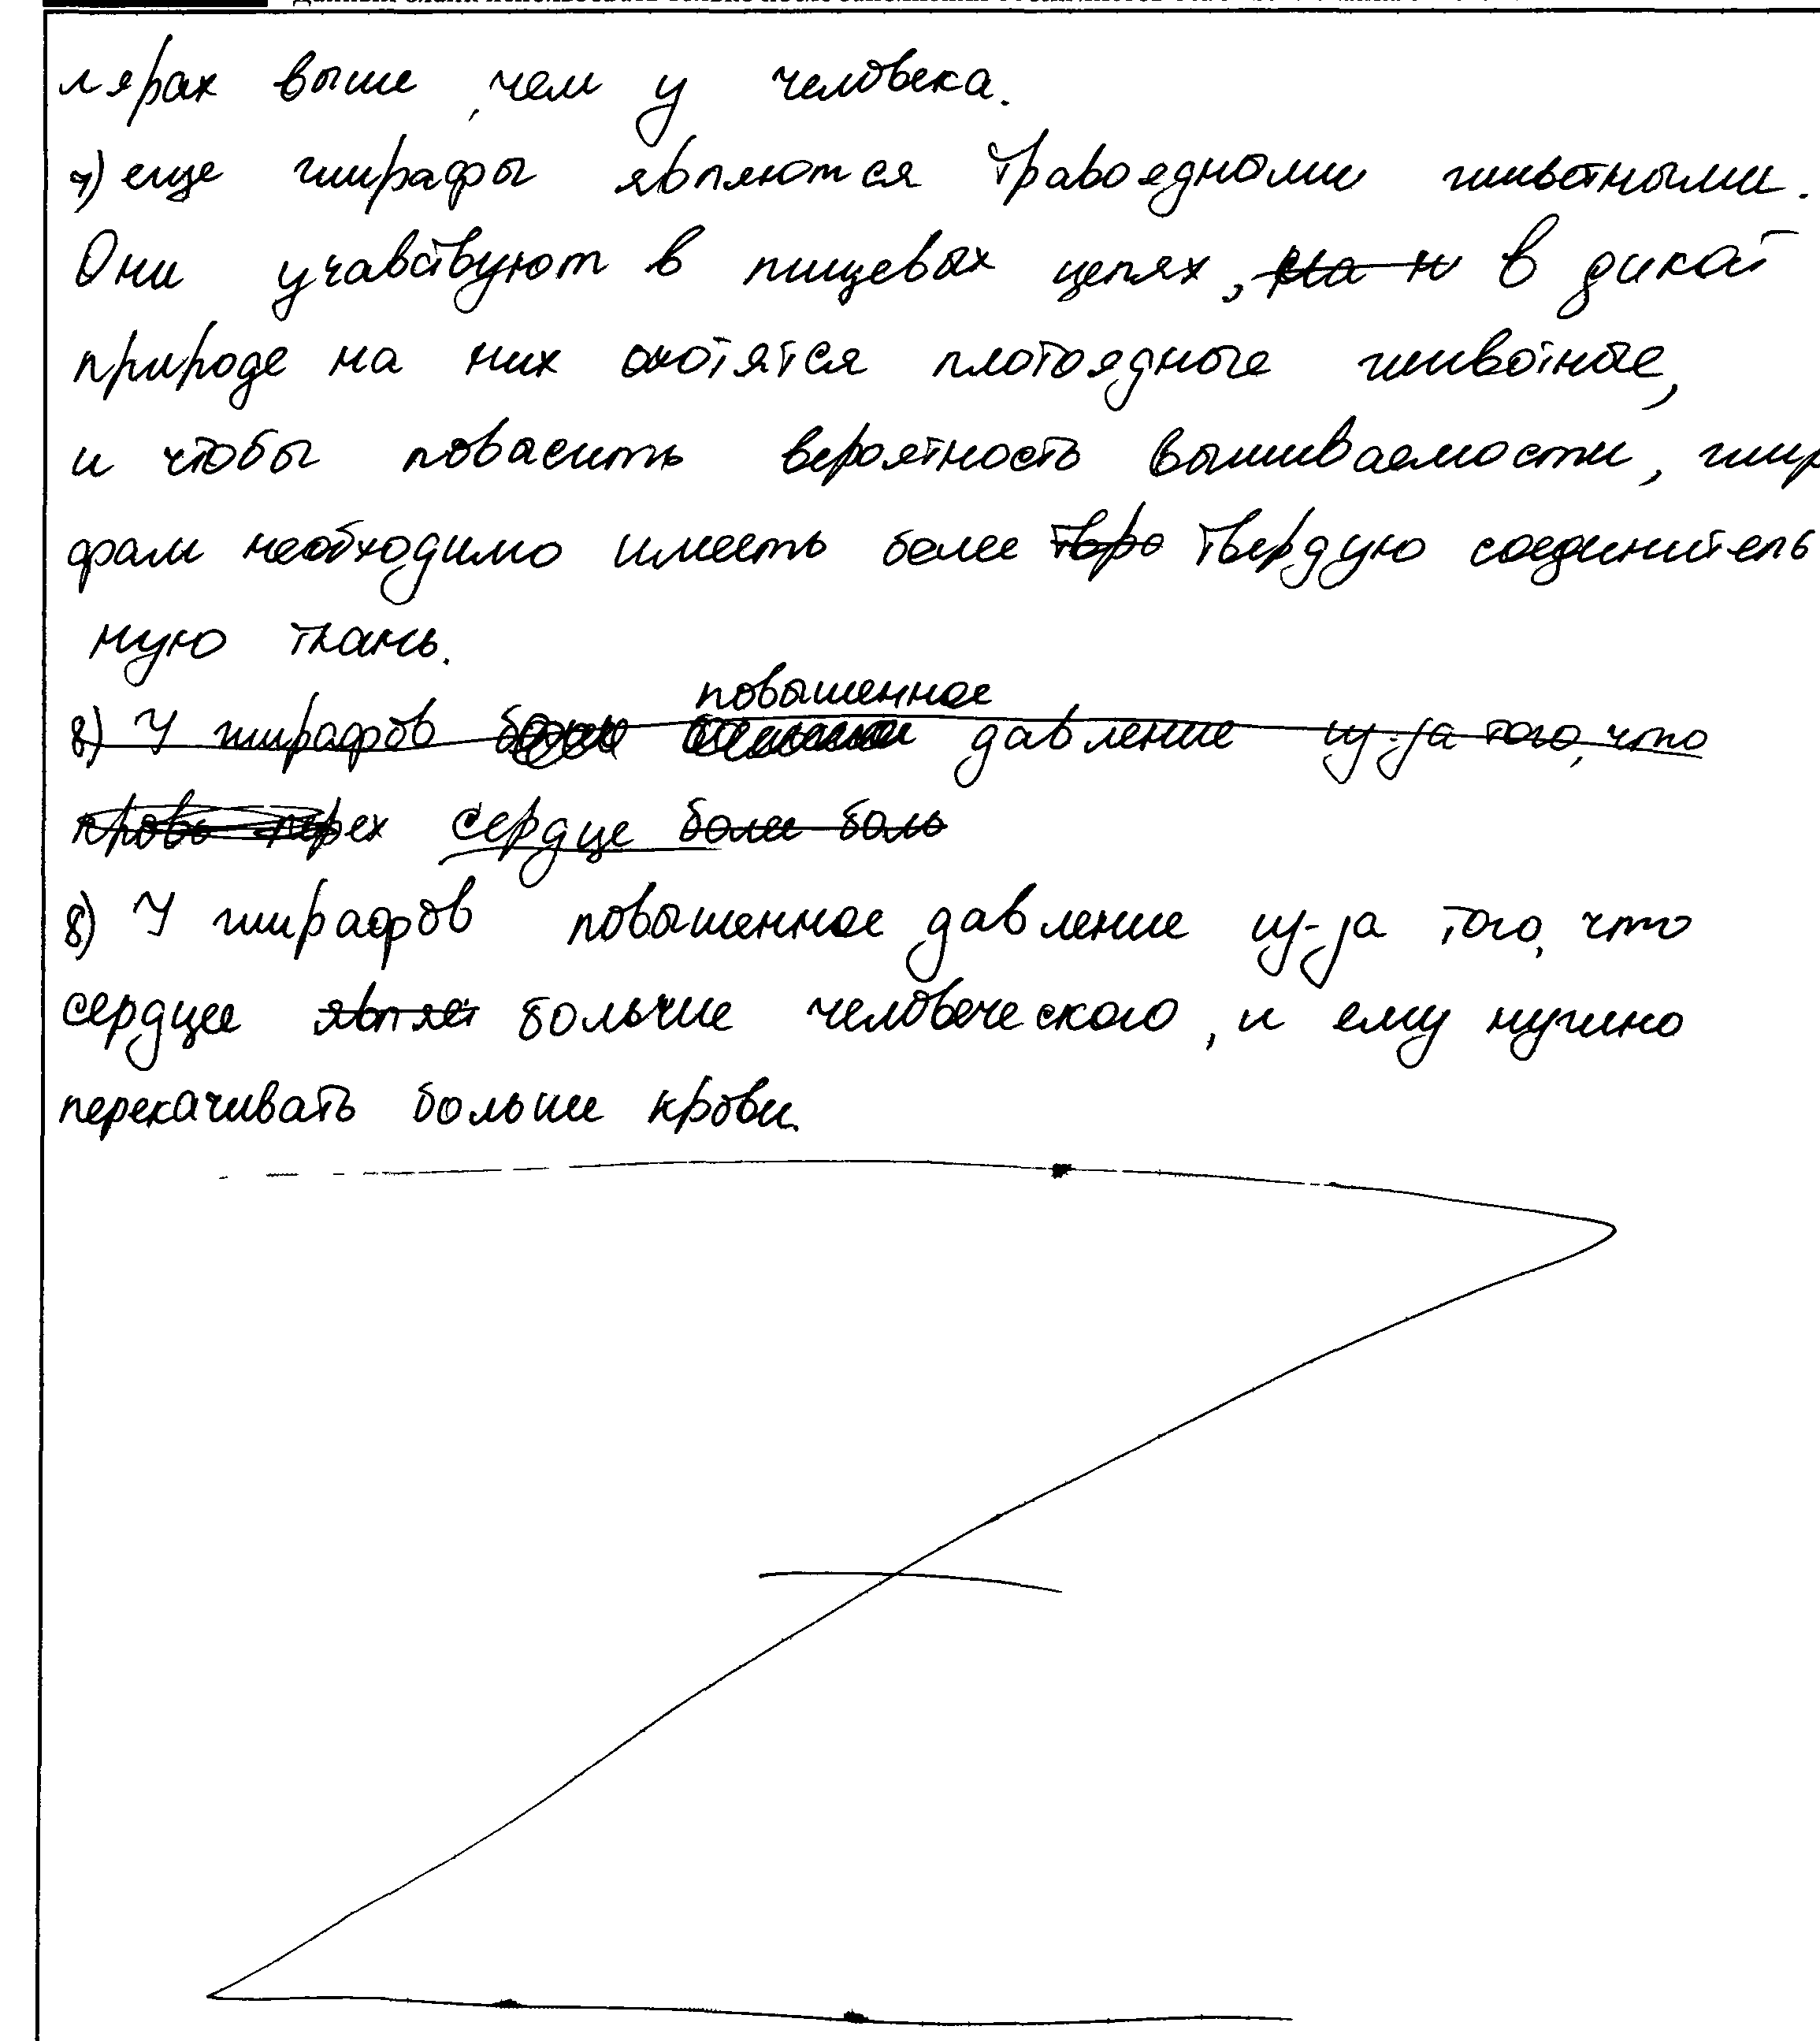 лярах выше, чем у человека.
7) еще жирафы являются травоядными животными.
Они учавствуют в пищевых цепях, на н в дикой
природе на них охотятся плотоядные животные,
и чтобы повысить вероятность выживаемости, жир
фам необходимо иметь более твёрдую соединитель
ную ткань.
повышенное
8) У жирафов давление из-за того, что
сердце более боль
8) У жирафов повышенное давление из-за того, что
сердцее являет больше человеческого, и ему нужно
перекачивать больше крови.